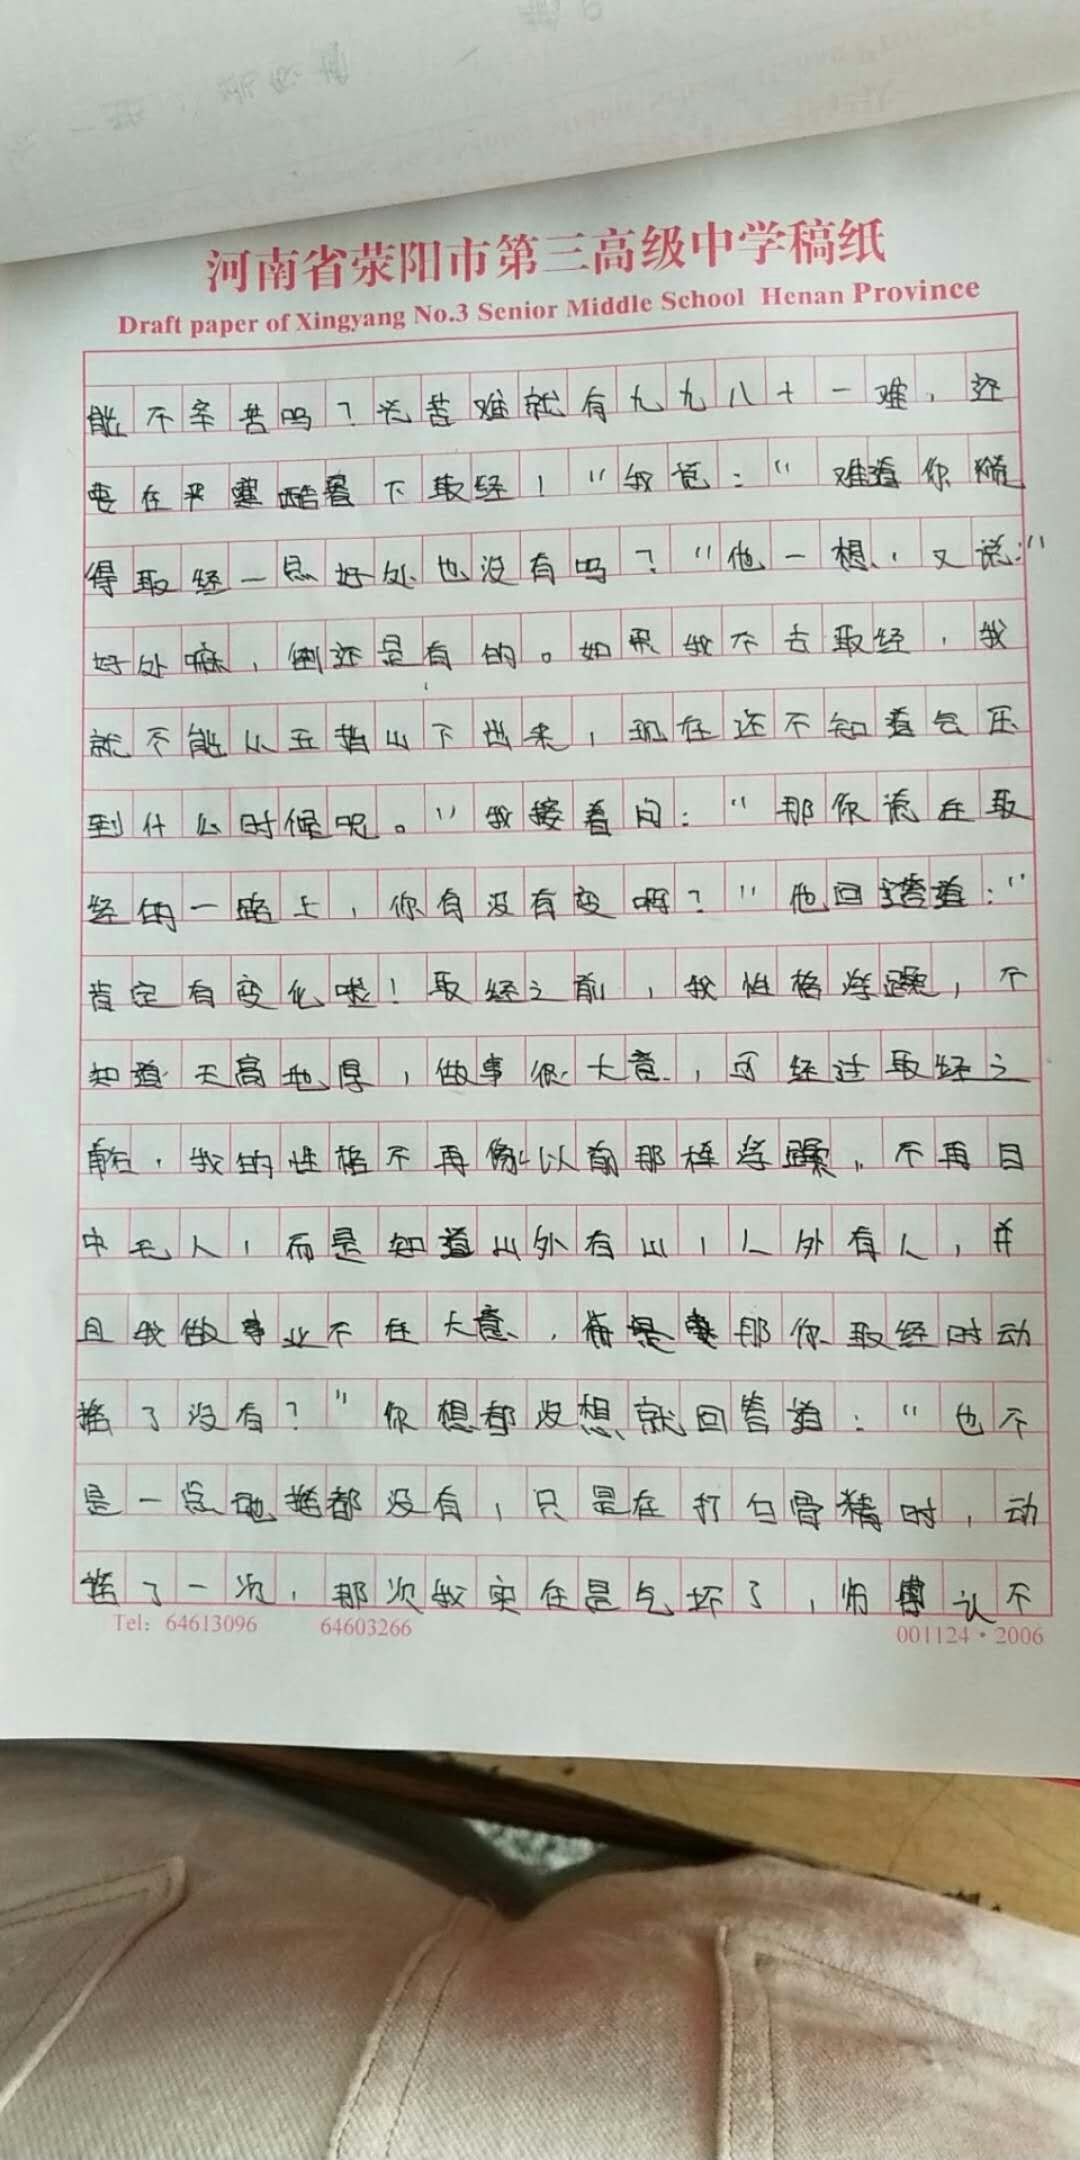 河南省荥阳市第三高级中学稿纸
Draft paper of Xingyang No.3 Senior Middle School Henan Province
能不辛苦吗？光苦难就有九九八十一难，还
要在严寒酷暑下取经！"我说："难道你觉
得取经一点好处也没有吗？"他一想，又说："
好处嘛，倒还是有的。如果我不去取经，我
就不能从五指山下出来，现在还不知道会压
到什么时候呢。"我接着问："那你说在取
经的一路上，你有没有变啊？"他回答道："
肯定有变化啦！取经之前，我性格浮躁，不
知道天高地厚，做事很大意，可经过取经之
后，我的性格不再像以前那样浮躁，不再目
中无人，而是知道山外有山，人外有人，并
且我做事业不在大意，那你取经时动
摇了没有？"你想都没想就回答道："也不
是一点动摇都没有，只是在打白骨精时，动
摇了一次，那次我实在是气坏了，师傅认不
Tel: 64613096 64603266
001124·2006